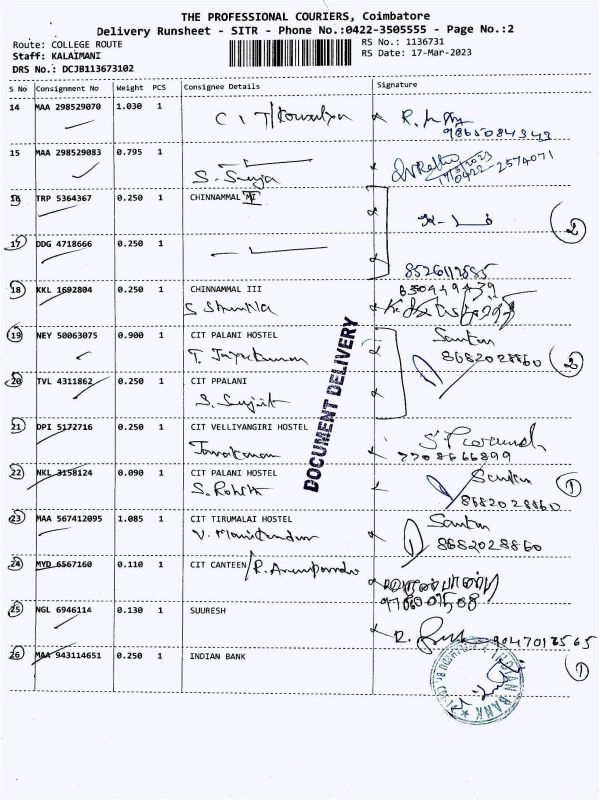 THE PROFESSIONAL COURIERS, Coimbatore
Delivery Runsheet - SITR - Phone No.:0422-3505555 - Page No.:2
Route: COLLEGE ROUTE
RS No.: 1136731
Staff: KALAIMANI
RS Date: 17-Mar-2023
DRS No.: DCJB113673102
S No Consignment No Weight PCS Consignee Details Signature
14 MAA 298529070 1.030 1 C I T/
98650 84343
15 MAA 298529083 0.795 1 S. Surya
17/3/2023
0422 2574071
16 TRP 5364367 0.250 1 CHINNAMMAL III
2
17 DDG 4718666 0.250 1
8526112885
18 KKL 1692804 0.250 1 CHINNAMMAL III
19 NEY 50063075 0.900 1 CIT PALANI HOSTEL Santan
T. Jayakumar 8682028860
2
20 TVL 4311862 0.250 1 CIT PPALANI
S. Sujit
DOCUMENT DELIVERY
21 DPI 5172716 0.250 1 CIT VELLIYANGIRI HOSTEL
7708666899
22 NKL 3158124 0.090 1 CIT PALANI HOSTEL Santan
S. Rohith 8682028860
1
23 MAA 567412095 1.085 1 CIT TIRUMALAI HOSTEL Santan
V. Manikandan 1 8682028860
24 MYD 6567160 0.110 1 CIT CANTEEN/
25 NGL 6946114 0.130 1 SUURESH
9047013565
26 MAA 943114651 0.250 1 INDIAN BANK
1
INDIAN BANK